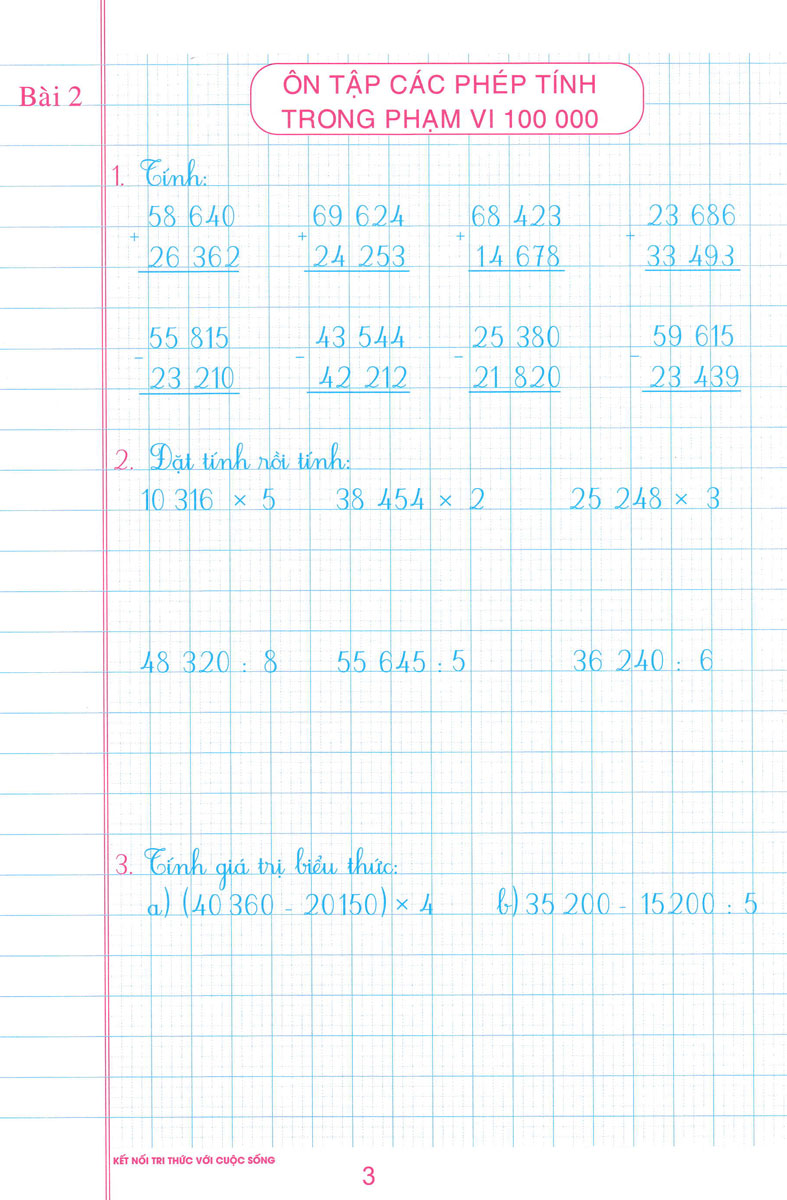 Bài 2
ÔN TẬP CÁC PHÉP TÍNH
TRONG PHẠM VI 100 000
1. Tính:
58 640 69 624 68 423 23 686
+ + + +
26 362 24 253 14 678 33 493
55 815 43 544 25 380 59 615
- - - -
23 210 42 212 21 820 23 439
2. Đặt tính rồi tính:
10 316 × 5 38 454 × 2 25 248 × 3
48 320 : 8 55 645 : 5 36 240 : 6
3. Tính giá trị biểu thức:
a) (40 360 - 20150) × 4 b) 35 200 - 15200 : 5
KẾT NỐI TRI THỨC VỚI CUỘC SỐNG
3